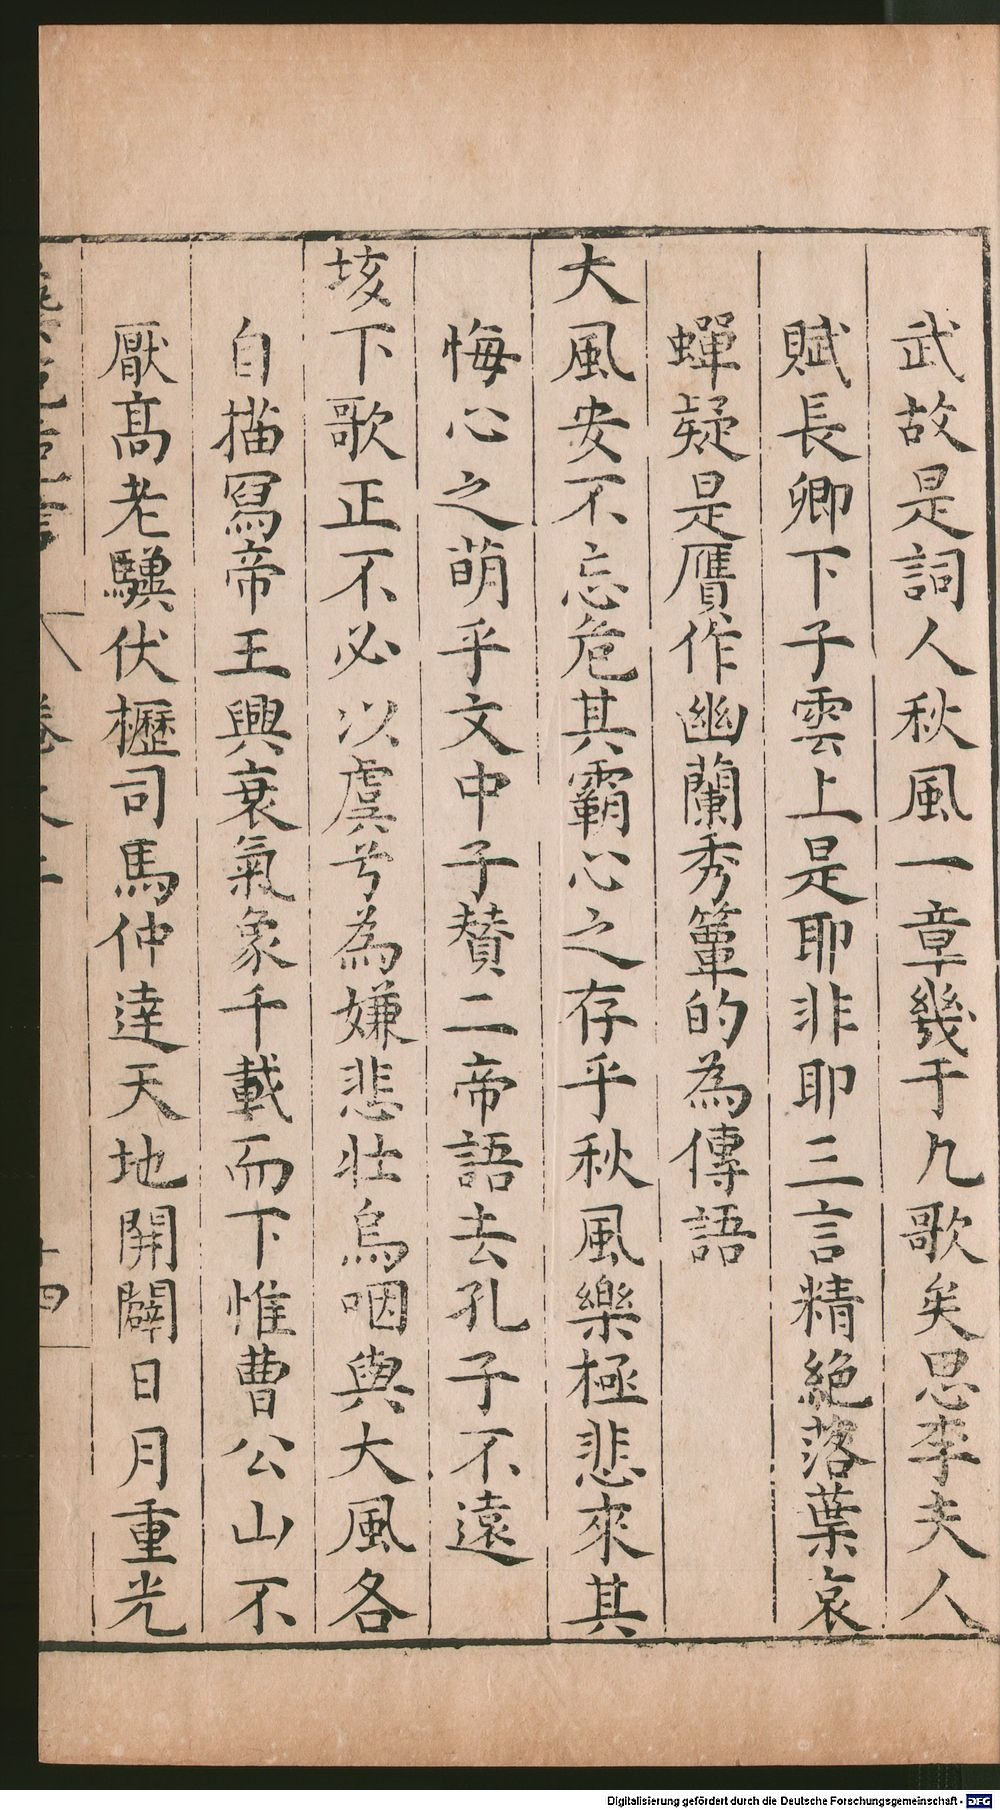 武故是詞人秋風一章幾于九歌矣思李夫人
賦長卿下子雲上是耶非耶三言精絶落葉哀
蟬疑是贋作幽蘭秀簟的為傳語
大風安不忘危其霸心之存乎秋風樂極悲來其
悔心之萌乎文中子賛二帝語去孔子不遠
垓下歌正不必以虞兮為嫌悲壯烏咽與大風各
自描寫帝王興衰氣象千載而下惟曹公山不
厭髙老驥伏櫪司馬仲達天地開闢日月重光
卷之二
十四
Digitalisierung gefördert durch die Deutsche Forschungsgemeinschaft - DFG